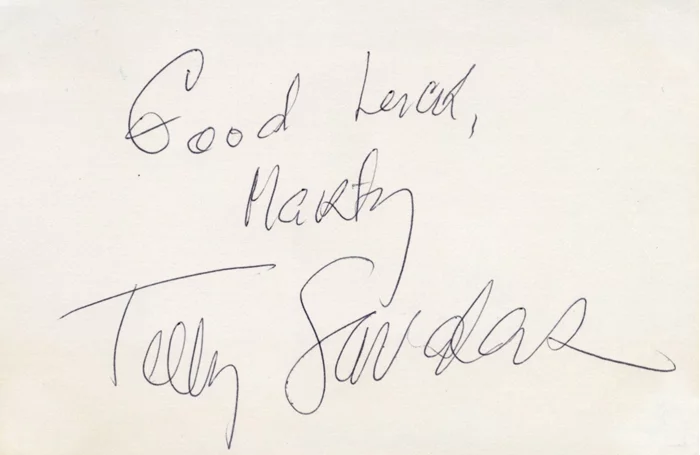 Good Luck,
Marty
Telly Savalas